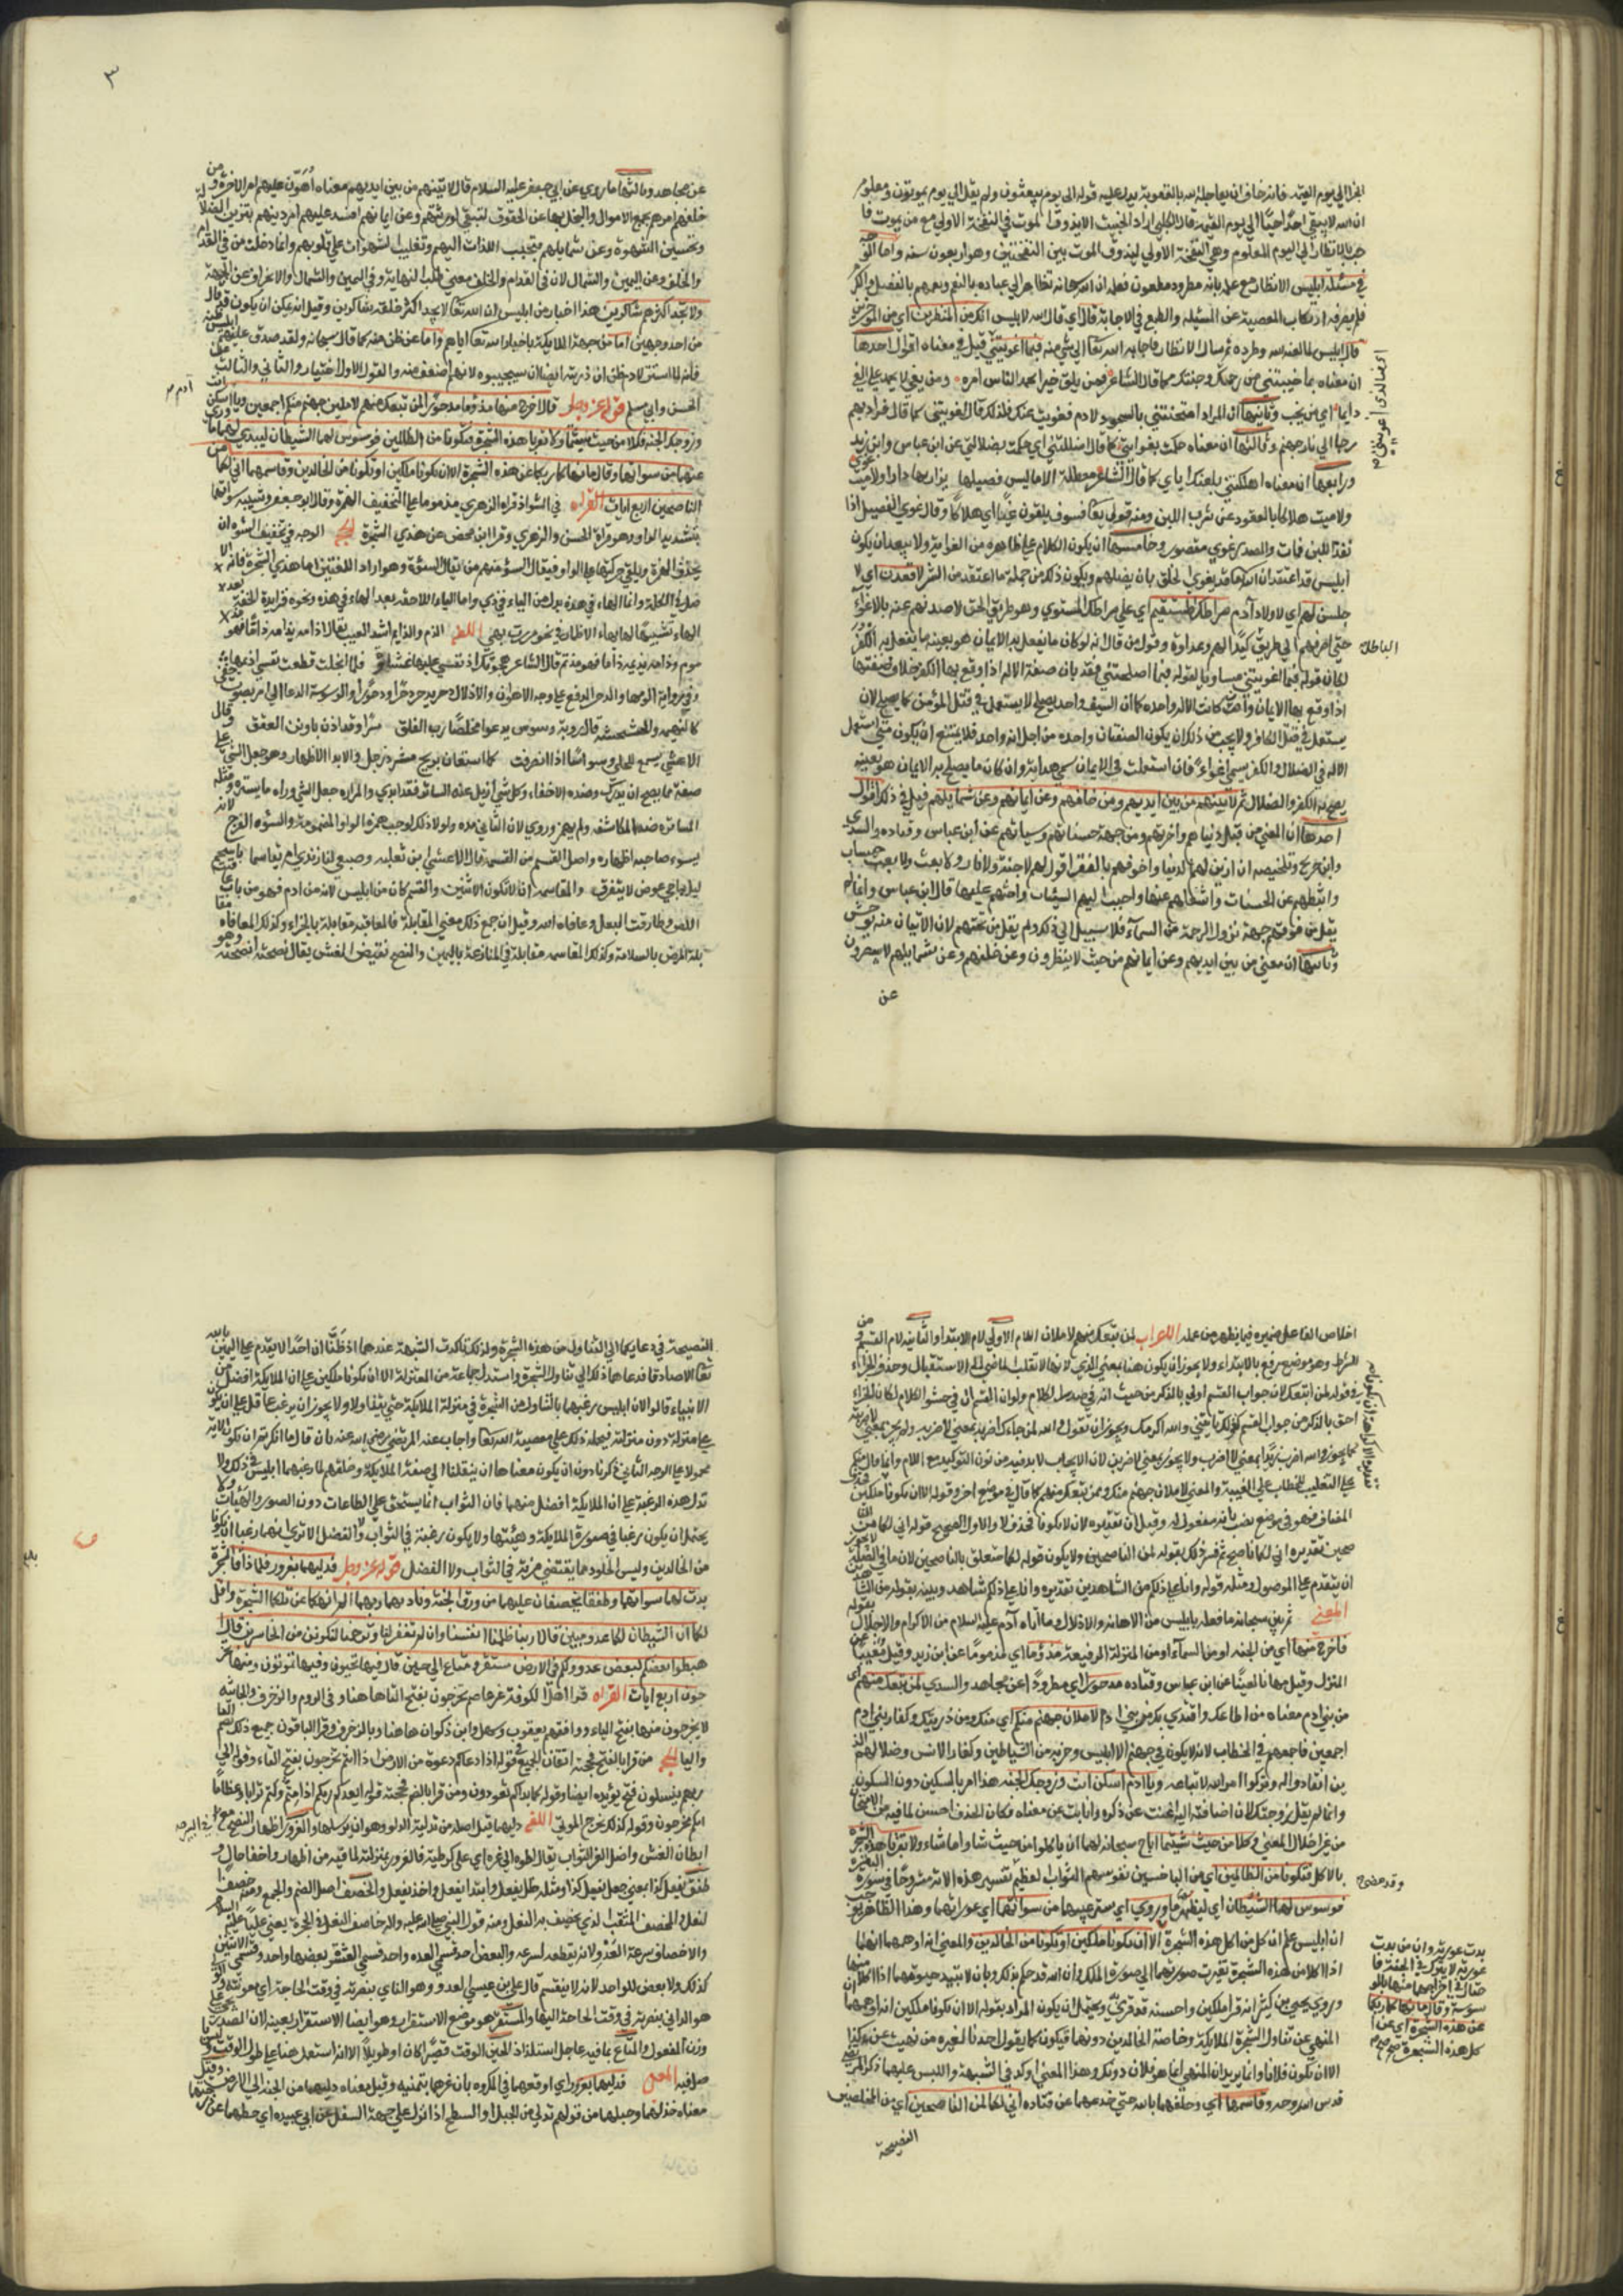 الجزا الي يوم القيمة فانه خاف ان يعاجله الله بالعقوبة يدل عليه قوله الى يوم يبعثون ولم يقل الي يوم يموتون ومعلوم
ان الله لا يبقي احدا حيا الي يوم القيمة قال الكلبي اراد الخبيث الا يذوق الموت في النفخة الاولي مع من يموت فا
جيب بالانظار الي اليوم المعلوم وهي النفخة الاولي ليذوق الموت بين النفختين وهو اربعون سنه واما الوجه
في مسئلة ابليس الانظار مع علمه بانه مطرود ملعون فعلمه ان الله سبحانه تظاهر الي عباده بالنعم ويعمهم بالفضل والكرم
فلم يصرفه ارتكاب المعصية عن المسئله والطمع في الاجابة قال اي قال الله لابليس انك من المنظرين اي من المؤخرين
قال ابليس لما لعنه الله وطرده ثم سال الانظار فاجابه الله تعا الي شي منه فبما اغويتني قيل في معناه اقوال احدها
ان معناه بما خيبتني من رحمتك وجنتك كما قال الشاعر فمن يلق خيرا يحمد الناس امره ومن يغو لا يعدم علي الغي
لايما اي من يخب وثانيها ان المراد امتحنتني بالسجود لادم فغويت عنده فلذلك قال اغويتني كما قال فزادتهم
رجسا الي رجسهم وثالثها ان معناه حكمت بغوايتي كما قال اضللتني اي حكمت بضلالتي عن ابن عباس وابن زيد
ورابعها ان معناه اهلكتني بلعنتك اياي كما قال الشاعر معطلة الاثناء ليس فصيلها برازيها دارا ولا ميت
ولا ميت هلاكا بالقعود عن شرب اللبن ومنه قوله تعا فسوف يلقون غيا اي هلاكا وقالوا غوي الفصيل اذا
فقد اللبن فمات والمصدر غوي مقصور وخامسها ان يكون الكلام علي ظاهره من الغواية ولا يبعد ان يكون
ابليس قد اعتقد ان الله تعا قد يغوي الخلق بان يضلهم ويكون ذلك من جملة ما اعتقده من الشر لاقعدن اي لا
جلسن لهم اي لاولاد آدم صراطك المستقيم اي علي صراطك المستوي وهو طريق الحق لاصدنهم عنه بالاغواء
حتي اصرفهم الي طريق كيدا لهم وعداوة وقول من قال انه لو كان ما يفعل به الايمان هو بعينه ما يفعل به الكفر
الباطل
لكان قوله فبما اغويتني مساويا لقوله فبما اصلحتني فقد بان صفة الاله اذا وقع بها الكفر خلاف صفتها
اذا وقع بها الايمان وان كانت الاله واحده كما ان السيف واحد يصلح لا يستعمل في قتل المؤمن كما يصلح لان
يستعمل في قتل الكافر ولا يجب من ذلك ان يكون الصفتان واحده من اجل انه واحد فلا يمتنع ان يكون متي استعمل
الاله في الضلال والكفر سمي اغواء فان استعملت في الايمان سمي هداية وان كان ما يصلح به الايمان هو بعينه
يصلح به الكفر والضلال ثم لاتينهم من بين ايديهم ومن خلفهم وعن ايمانهم وعن شمايلهم قيل في ذلك اقوال
احدها ان المعني من قبل دنياهم واخرتهم ومن جهة حسناتهم وسياتهم عن ابن عباس وقتاده والسدي
وابن جريج وتلخيصه اني ازين لهم الدنيا واخوفهم بالفقر اقول لهم لا جنة ولا نار ولا بعث ولا حساب
واثبطهم عن الحسنات واشغلهم عنها واحبب اليهم السيئات واحثهم عليها قال ابن عباس وانما لم
يقل من فوقهم جهة نزول الرحمة من السماء فلا سبيل الي ذلك ولم يقل من تحتهم لان الاتيان منه توحش
وثانيها ان معني من بين ايديهم وعن ايمانهم من حيث لا ينظرون وعن خلفهم وعن شمايلهم لا يبصرون
عن
٣
عن مجاهد وثالثها ما روي عن ابي جعفر عليه السلام قال لاتينهم من بين ايديهم معناه اهون عليهم امر الاخرة ومن
خلفهم امرهم بجمع الاموال والبخل بها عن الحقوق لتبقي لورثتهم وعن ايمانهم افسد عليهم امر دينهم بتزيين الضلالة
وتحسين الشبهة وعن شمايلهم بتحبيب اللذات اليهم وتغليب الشهوات علي قلوبهم وانما دخلت من في القدام
والخلف وعن في اليمين والشمال لان في القدام والخلف معني طلب النهاية وفي اليمين والشمال الانحراف عن الجهة
ولا تجد اكثرهم شاكرين هذا اخبار من ابليس ان الله تعا لا يجد اكثر خلقه شاكرين وقيل انه يمكن ان يكون قد قال
من احد وجهين اما من جهة الملايكة باخبار الله تعا اياهم واما عن ظن منه كما قال سبحانه ولقد صدق عليهم ابليس ظنه
فانه لما استزل ادم ظن ان ذريته ايضا سيجيبوه لانهم اضعف منه والقول الاول اختيار والثاني والثالث عن
الحسن وابي مسلم قوله عز وجل قال اخرج منها مذؤما مدحورا لمن تبعك منهم لاملان جهنم منكم اجمعين ويا آدم اسكن انت
وزوجك الجنة فكلا من حيث شيتما ولا تقربا هذه الشجرة فتكونا من الظالمين فوسوس لهما الشيطان ليبدي لهما ما وري
عنهما من سواتهما وقال ما نهاكما ربكما عن هذه الشجرة الا ان تكونا ملكين او تكونا من الخالدين وقاسمهما اني لكما لمن
الناصحين اربع ايات القراءه في الشواذ قراه الزهري مذموما علي التخفيف الهمزة وقرا ابو جعفر وشيبه سواتهما
بتشديد الواو وهو قراة الحسن والزهري وقرا ابن محيصن عن هذي الشجرة الحجة الوجه في تخفيف السوءة ان
يحذف الهمزة ويلقي حركتها علي الواو فيقال السوة ومنهم من يقال السوة وهو اراد اللغتين اما هذي الشجرة فانه الا
صل في الكلمة وانما الهاء في هذه بدل من الياء في ذي واما الياء اللاحقة بعد الهاء في هذه ونحوه فزايدة لحقت بعد
الهاء تشبيها لها بهاء الاضمار في نحو مررت بهي اللغه الذم والذام اشد العيب يقال ذامه يذامه ذاما فهو مذ
وم وذامه يذيمه ذيما وذاما فهو مذيم قال الشاعر صحبتك اذ عيني عليها غشاوة فلما انجلت قطعت نفسي اذيمها
وفي رواية الومها والدحر الدفع علي وجه الهوان والاذلال دحره يدحره دحرا ودحورا والوسوسة الدعا الي امر بصوت خفي
كالهيمنه والخشخشة قال روبة وسوس يدعو مخلصا رب الفلق سرا وقد اون تاوين العقق وقال
الاعشي يسمع للحلي وسواسا اذا انصرفت كما استعان بريح عشرق زجل والابدا الاظهار وهو جعل الشي علي
صفة ما يصح ان يدرك وضده الاخفاء وكل شي ازيل عنه الساتر فقد ابدي والمواراه جعل الشي وراه ما يستره ومثله
المساتره ضد المكاشفه ولم يهمز ووري لان الثاني مده ولولا ذلك لوجب همز الواو المضمومة والسوءه الفرج لانه
يسوء صاحبه اظهاره واصل القسم من القسمه قال الاعشي رضيعي لبان ثدي ام تقاسما باسحم
داج عوض لا يتفرق والمقاسمه انما لا تكون الا اثنين والقسم كان من ابليس لا من ادم فهو من باب عا
قبت اللص وطارقت النعل وعافاه الله وقيل ان جمع ذلك معني المقابلة فالمعاقبه مقابلة بالجزاء وكذلك المعافاه مقا
بلة المرض بالسلامة وكذلك المقاسمه مقابلة في المنازعة باليمين والنصح نقيض الغش يقال نصحته انصحه وهو
اخلاص الفاعل ضميره فيما يظهر من عمله الاعراب لمن تبعك منهم لاملان اللام الاولي لام الابتداء والثانيه لام القسم ومن
للشرط وهو موضع رفع بالابتداء ولا يجوز ان يكون هنا بمعني الذي لانها لا تقلب الماضي الي الاستقبال وحذف الجزاء
في قوله لمن تبعك لان جواب القسم اولي بالذكر من حيث انه في صدر الكلام ولو ان القسم ان في حشو الكلام لكان الجزاء
احق بالذكر من جواب القسم كقولك ان تاتني والله اكرمك ويجوز ان تقول والله لمن جاءك اضربه بمعني لاضربه ولم يجز بمعني لاضربنه
كما يجوز والله اضرب زيدا بمعني لا اضرب ولا يجوز بمعني لاضربن لان الايجاب لابد فيه من نون التوكيد مع اللام وانما قال منكم
علي التغليب للخطاب علي الغيبة والمعني لاملان جهنم منك وممن تبعك منهم كما قال في موضع اخر وقوله الا ان تكونا ملكين
المضاف فهو في موضع نصب بانه مفعول له وقيل ان تقديره لان لا تكونا فحذف لا والاول الصحيح قوله اني لكما لمن النا
صحين تقديره اني لكما ناصح ثم فسر ذلك بقوله لمن الناصحين ولا يكون قوله لكما متعلق بالناصحين لان ما في الصلة لا يجوز
ان يتقدم علي الموصول ومثله قوله وانا علي ذلكم من الشاهدين تقديره وانا علي ذلكم شاهد وبينه بقوله من الشاهدين
المعني ثم بين سبحانه ما فعله بابليس من الاهانه والاذلال وما اتاه آدم عليه السلام من الاكرام والاجلال بقوله
فاخرج منها اي من الجنه او من السماء او من المنزلة الرفيعة مذؤما اي مذموما عن ابن زيد وقيل معيبا
المنزل وقيل مهانا لعينا عن ابن عباس وقتاده مدحورا اي مطرودا عن مجاهد والسدي لمن تبعك منهم اي
من بني ادم معناه من اطاعك واقتدي بك من بني ادم لاملان جهنم منكم اي منك ومن ذريتك وكفار بني ادم
اجمعين فاجمعهم في الخطاب لانه لا يكون في جهنم الا ابليس وحزبه من الشياطين وكفار الانس وضلالهم الذ
ين انقادوا له وتركوا امر الله لاتباعه ويا ادم اسكن انت وزوجك الجنه هذا امر بالسكن دون السكون
وانما لم يقل زوجتك لان اضافته اليه اغنت عن ذكره وابانت عن معناه فكان الحذف احسن لما فيه من الايجاز
من غير اخلال المعني وكلا من حيث شيتما اباح سبحانه لهما ان ياكلوا من حيث شاءا وما شاءا ولا تقربا هذه الشجرة
بالاكل فتكونا من الظالمين اي من الباخسين نفوسهم الثواب العظيم تفسير هذه الاية مشروحا في سورة البقرة
فوسوس لهما الشيطان اي ليظهر ما ووري اي ستر عنهما من سواتهما اي عوراتهما وهذا الظاهر
وقد مضي
ان ابليس علم ان كل من اكل هذه الشجرة الا ان تكونا ملكين او تكونا من الخالدين والمعني انه اوهمهما انهما
اذا اكلا من هذه الشجرة تغيرت صورتهما الي صورة الملك وان الله قد حكم بذلك وبان لا تبيد حيوتهما اذا اكلا منها
وروي عن يحيي بن كثير انه قرا ملكين واحسنه توقري ويحتمل ان يكون المراد بقوله الا ان تكونا ملكين انه اوهمهما ان
المنهي عن تناول الشجرة الملايكة وخاصة الخالدين دونهما فيكون كما يقول احدنا لغيره من نهيت عن كذا
الا ان تكون فلانا وانما يريد ان المنهي انما هو فلان دونك وهذا المعني اوكد في الشبهة واللبس عليهما ذكر المرتضي
قدس الله روحه وقاسمهما اي وحلف لهما بالله حتي خدعهما عن قتاده اني لكما لمن الناصحين اي من المخلصين
بدت عورته وان من بدت
عورته لا يترك في الجنة فا
حتال في اخراجهما منها بالو
سوسة وقال ما نهاكما ربكما
عن هذه الشجرة اي عن ا
كل هذه الشجرة صح
النصيحة
النصيحة في دعايكما الي التناول من هذه الشجرة ولذلك تاكدت الشبهة عندهما اذ ظنا ان احدا لا يقدم علي اليمين بالله
تعا الا صادقا فدعاهما ذلك الي تناول الشجرة واستدل جماعة من المعتزلة الا ان تكونا ملكين علي ان الملايكة افضل من
الانبياء قالوا لان ابليس رغبهما بالتناول من الشجرة في منزلة الملايكة حتي يتناولا ولا يجوز ان يرغب عاقل علي ان يكون
علي منزلة دون منزلته فيحمله ذلك علي معصية الله تعا واجاب عنه المرتضي رضي الله عنه بان قال ما انكرتم ان تكون الاية
محمولا علي الوجه الثاني ذكرنا دون ان يكون معناها ان ينقلنا الي صفة الملايكة وخلقهم لما رغبهما ابليس في ذلك ولا
تدل هذه الرغبة علي ان الملايكة افضل منهما فان الثواب انما يستحق علي الطاعات دون الصور والهيئات ولا
يحتمل ان يكون رغبا في صورة الملايكة وهيئتها ولا يكون رغبة في الثواب ولا الفضل الا تري انهما رغبا ان يكونا
من الخالدين وليس الخلود مما يقتضي مزية في الثواب ولا الفضل قوله عز وجل فدليهما بغرور فلما ذاقا الشجرة
بدت لهما سواتهما وطفقا يخصفان عليهما من ورق الجنة وناديهما ربهما الم انهكما عن تلكما الشجرة واقل
لكما ان الشيطان لكما عدو مبين قالا ربنا ظلمنا انفسنا وان لم تغفر لنا وترحمنا لنكونن من الخاسرين قال ا
هبطوا بعضكم لبعض عدو ولكم في الارض مستقر ومتاع الي حين قال فيها تحيون وفيها تموتون ومنها تخر
جون اربع ايات القراه قرا اهل الكوفة غير عاصم تخرجون بفتح التا هاهنا وفي الروم والزخرف والجاثيه
لا يخرجون منها بفتح الياء ووافقهم يعقوب وسهل وابن ذكوان هاهنا وبالزخرف وقرا الباقون جميع ذلك بضم التا
واليا الحجه من قرا بالفتح فحجته اتفاق الجميع في قوله اذا دعاكم دعوة من الارض اذا انتم تخرجون بفتح التاء وقوله الي
ربهم ينسلون فتح يؤيده ايضا وقوله كما بداكم تعودون ومن قرا بالضم فحجته قوله ايعدكم انكم اذا متم وكنتم ترابا وعظاما
انكم مخرجون وقوله كذلك نخرج الموتي اللغه دليهما قيل اصله من تدلية الدلو وهو ان يرسلها والغرور اظهار النصح مع
في البير صح
ابطان الغش واصل الغر الثواب يقال اطوه الي غره اي علي كسر طيته فالغرور بمنزلته لما فيه من اظهار واخفا حال و
طفق يفعل كذا بمعني جعل يفعل كذا ومثله ظل يفعل وابتدا يفعل واخذ يفعل والخصف اصل الضم والجمع ومنه خصف
النعل والمخصف المثقب الذي يخصف به النعل ومنه قول النبي صلي الله عليه واله خاصف النعل في الحجرة يعني عليا عليه السلام
والاخصاف سرعة العدو لانه يقطعه لسرعه والبعض احد قسمي العده واحد قسمي العشره بعضها واحد وقسمي الاثنين
كذلك ولا بعض للواحد لانه لا ينقسم قال علي بن عيسي العدو هو النائي بنصرته في وقت الحاجة اي معونته والولي
هو الداني بنصرته في وقت الحاجة اليها والمستقر هو موضع الاستقرار وهو ايضا الاستقرار بعينه لان المصدر يجي علي
وزن المفعول والمتاع بما فيه عاجل استلذاذ الحين الوقت قصيرا كان او طويلا الا انه استعمل هنا علي طول الوقت وليس
صلا فيه المعني فدليهما بغرور اي اوقعهما في المكروه بان غرهما بيمينه وقيل معناه دليهما من الجنة الي الارض وقيل
معناه خذلهما وخيبهما من قولهم تدلي من الجبل او السطح اذا نزل علي جهة السفل عن ابي عبيده اي حطهما عن